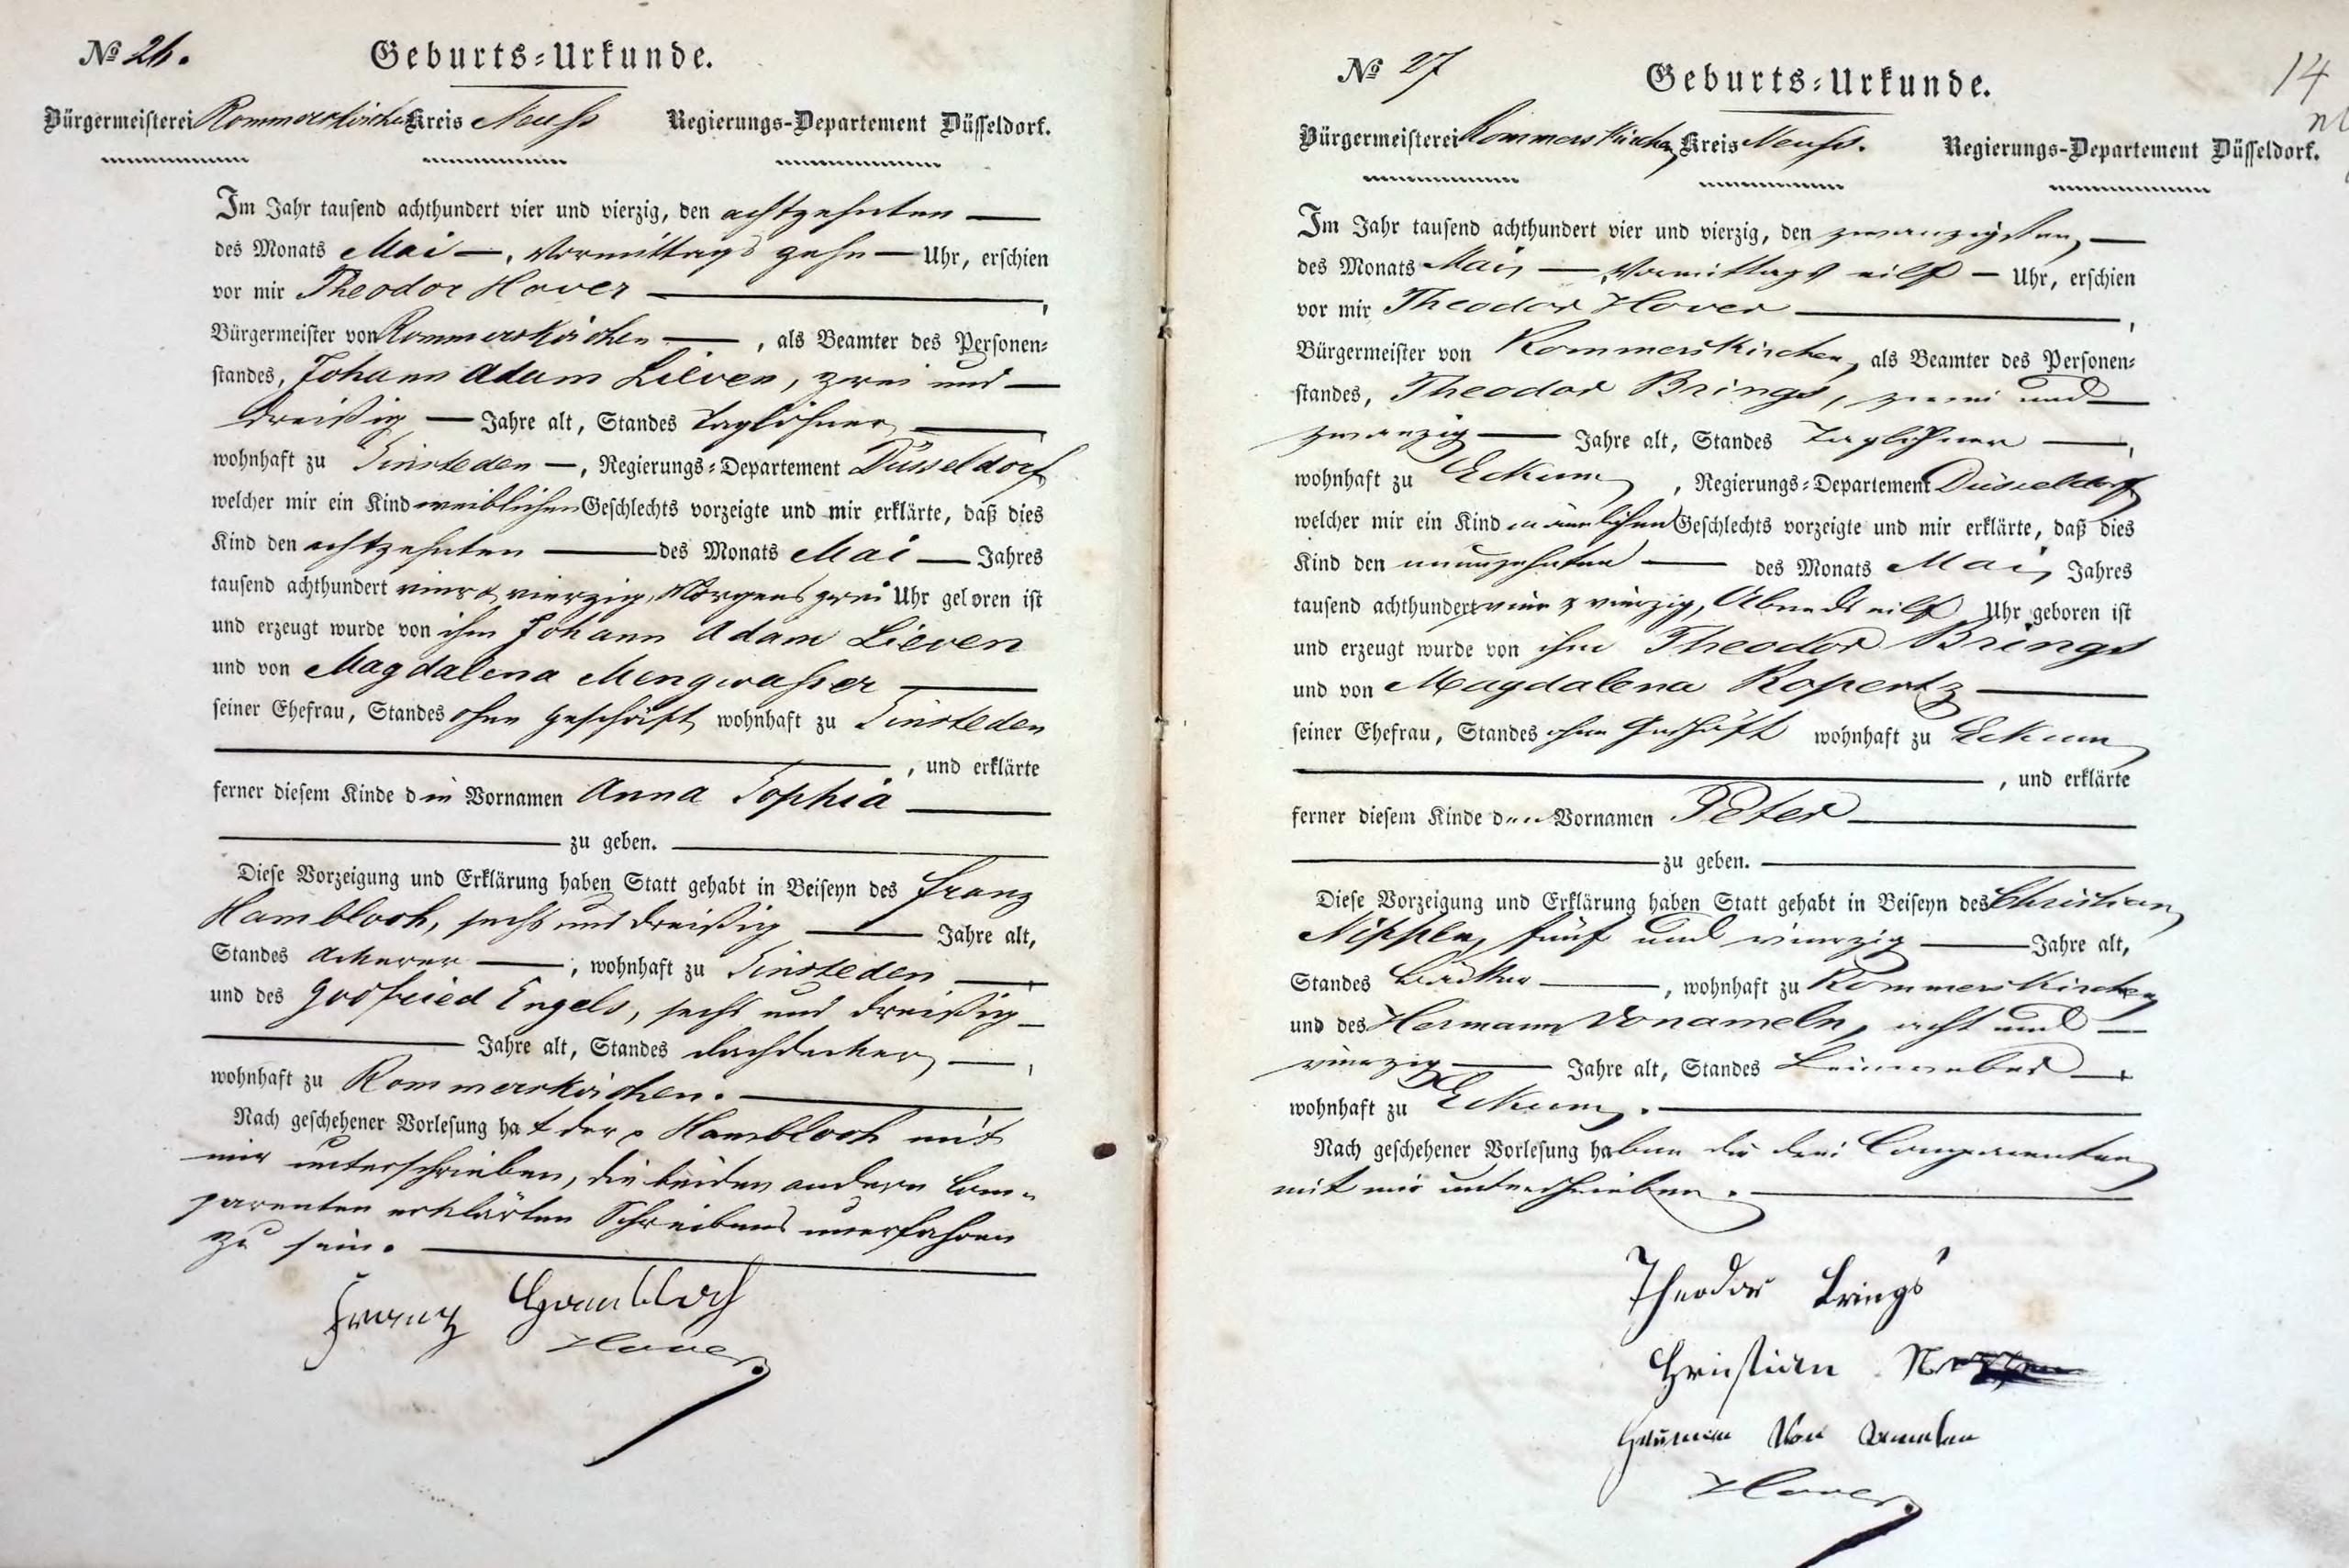 № 26.
Geburts-Urkunde.
Bürgermeisterei Rommerskirchen Kreis Neuss Regierungs-Departement Düsseldorf.
Im Jahr tausend achthundert vier und vierzig, den achtzehnten
des Monats Mai, Vormittags zehn Uhr, erschien
vor mir Theodor Hover,
Bürgermeister von Rommerskirchen, als Beamter des Personen=
standes, Johann Adam Lieven, zwei und
dreißig Jahre alt, Standes Taglöhner,
wohnhaft zu Sinsteden, Regierungs=Departement Düsseldorf
welcher mir ein Kind weiblichen Geschlechts vorzeigte und mir erklärte, daß dies
Kind den achtzehnten des Monats Mai Jahres
tausend achthundert vier & vierzig, Morgens zwei Uhr geboren ist
und erzeugt wurde von ihm Johann Adam Lieven
und von Magdalena Mengwasser
seiner Ehefrau, Standes ohne Geschäft, wohnhaft zu Sinsteden
, und erklärte
ferner diesem Kinde die Vornamen Anna Sophia
zu geben.
Diese Vorzeigung und Erklärung haben Statt gehabt in Beiseyn des Franz
Hambloch, sechs und dreißig Jahre alt,
Standes Ackerer, wohnhaft zu Sinsteden,
und des Godfried Engels, sechs und dreißig
Jahre alt, Standes Dachdecker,
wohnhaft zu Rommerskirchen.
Nach geschehener Vorlesung hat der p Hambloch mit
mir unterschrieben, die beiden andern Com=
parenten erklärten Schreibens unerfahren
zu sein.
Franz Hambloch
Hover.
14
№ 27
Geburts-Urkunde.
Bürgermeisterei Rommerskirchen Kreis Neuss. Regierungs-Departement Düsseldorf.
Im Jahr tausend achthundert vier und vierzig, den zwanzigsten,
des Monats Mai, Vormittags eilf Uhr, erschien
vor mir Theodor Hover,
Bürgermeister von Rommerskirchen, als Beamter des Personen=
standes, Theodor Brings, zwei und
zwanzig Jahre alt, Standes Taglöhner,
wohnhaft zu Eckum, Regierungs=Departement Düsseldorf
welcher mir ein Kind männlichen Geschlechts vorzeigte und mir erklärte, daß dies
Kind den neunzehnten des Monats Mai, Jahres
tausend achthundert vier & vierzig, Abends eilf Uhr geboren ist
und erzeugt wurde von ihm Theodor Brings
und von Magdalena Ropertz
seiner Ehefrau, Standes ohne Geschäft wohnhaft zu Eckum
, und erklärte
ferner diesem Kinde den Vornamen Peter
zu geben.
Diese Vorzeigung und Erklärung haben Statt gehabt in Beiseyn des Christian
Nippen, fünf und vierzig Jahre alt,
Standes, wohnhaft zu Rommerskirchen
und des Hermann Vonameln, acht und
vierzig Jahre alt, Standes Leinweber,
wohnhaft zu Eckum.
Nach geschehener Vorlesung haben die drei Comparenten
mit mir unterschrieben.
Theodor Brings
Christian
Hermann Von Ameln
Hover.